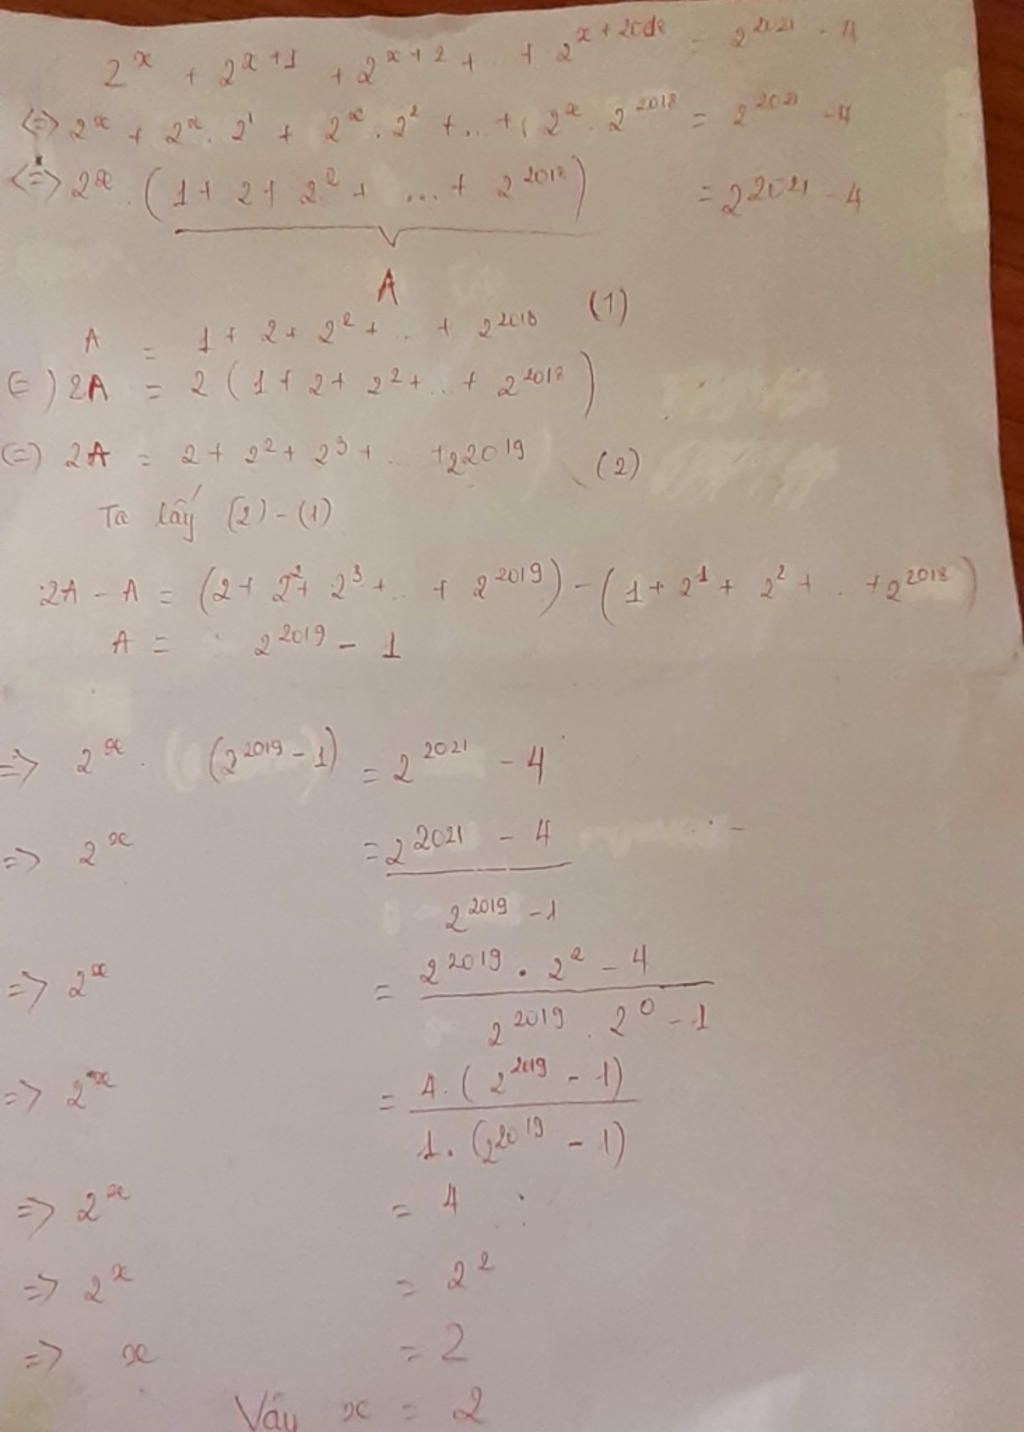 2^x + 2^{x+1} + 2^{x+2} + .. + 2^{x+2018} = 2^{2021} - 4
<=> 2^x + 2^x . 2^1 + 2^x . 2^2 + ... + 2^x . 2^{2018} = 2^{2021} - 4
<=> 2^x . (1 + 2 + 2^2 + ... + 2^{2018}) = 2^{2021} - 4
A
A = 1 + 2 + 2^2 + .. + 2^{2018} (1)
(=) 2A = 2 (1 + 2 + 2^2 + .. + 2^{2018})
(=) 2A = 2 + 2^2 + 2^3 + .. + 2^{2019} (2)
Ta lấy (2) - (1)
2A - A = (2 + 2^2 + 2^3 + .. + 2^{2019}) - (1 + 2^1 + 2^2 + .. + 2^{2018})
A = 2^{2019} - 1
=> 2^x . (2^{2019} - 1) = 2^{2021} - 4
=> 2^x = \frac{2^{2021} - 4}{2^{2019} - 1}
=> 2^x = \frac{2^{2019} . 2^2 - 4}{2^{2019} . 2^0 - 1}
=> 2^x = \frac{4. (2^{2019} - 1)}{1. (2^{2019} - 1)}
=> 2^x = 4
=> 2^x = 2^2
=> x = 2
Vậy x = 2